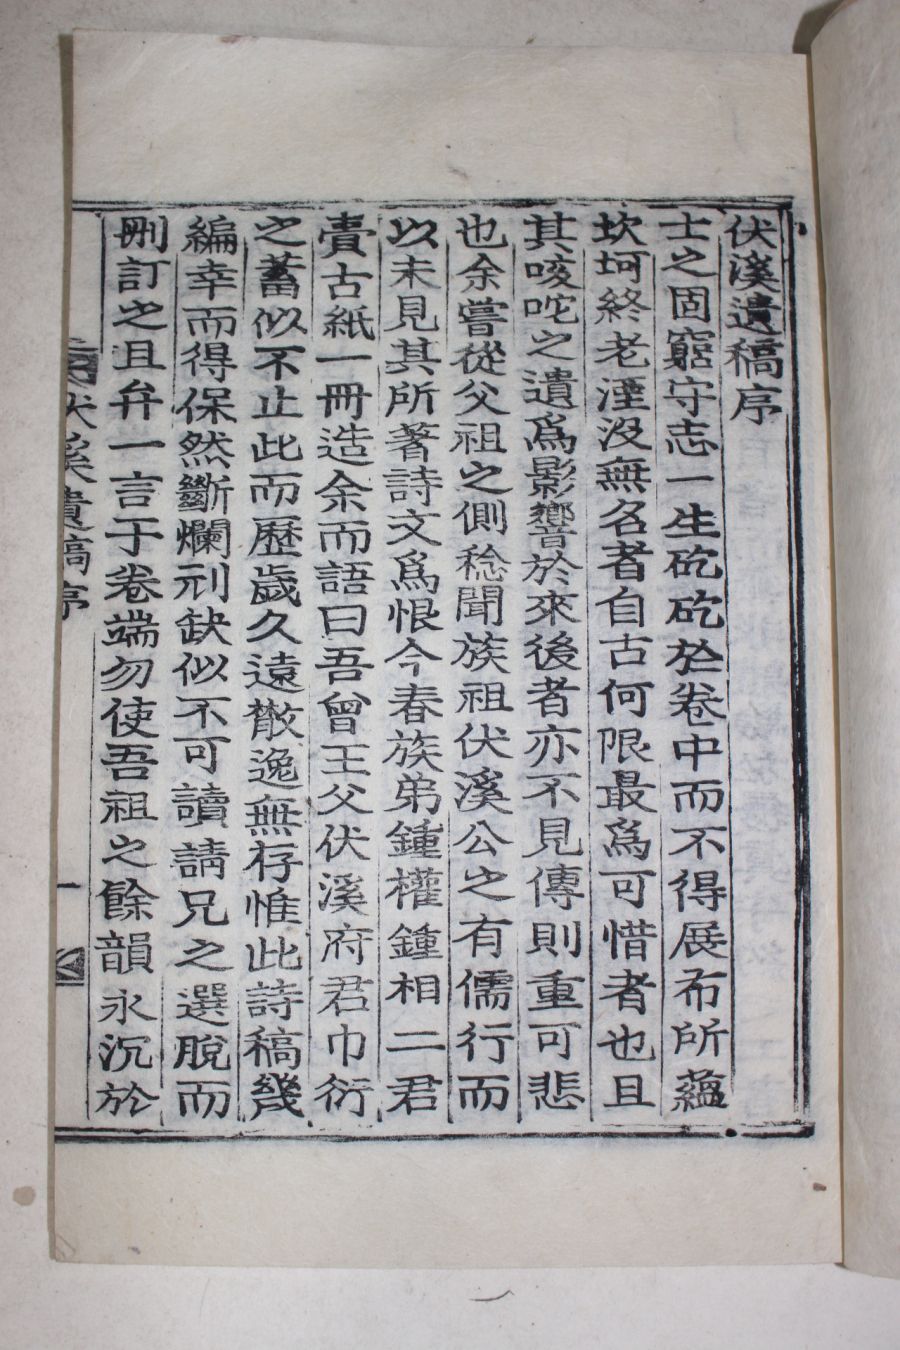 伏溪遺稿序
士之固窮守志一生矻矻於卷中而不得展布所蘊
坎坷終老湮沒無名者自古何限最爲可惜者也且
其咳咜之遺爲影響於來後者亦不見傳則重可悲
也余嘗從父祖之側稔聞族祖伏溪公之有儒行而
以未見其所著詩文爲恨今春族弟鍾權鍾相二君
賷古紙一冊造余而語曰吾曾王父伏溪府君巾衍
之蓄似不止此而歷歲久遠散逸無存惟此詩稿幾
編幸而得保然斷爛刓缺似不可讀請兄之選脫而
刪訂之且弁一言于卷端勿使吾祖之餘韻永沉於
伏溪遺稿序
一